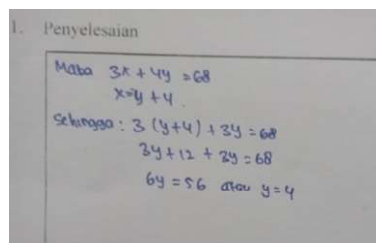 1. Penyelesaian
Maka 3x + 4y = 68
x = y + 4.
Sehingga : 3 (y+4) + 3y = 68
3y + 12 + 3y = 68
6y = 56 atau y = 4